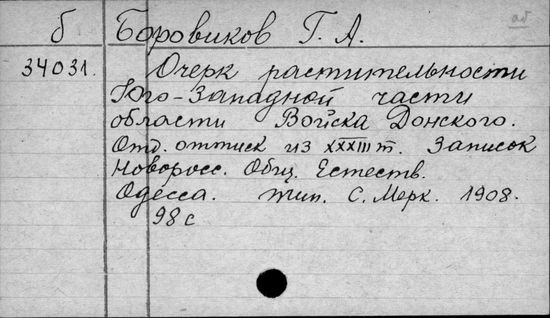 б Боровиков Г. А.
34031. Очерк растительности
Юго-Западной части
области Войска Донского.
Отд. оттиск из XXXIII т. Записок
Новоросс. Общ. Естеств.
Одесса. тип. С. Мерк. 1908.
98 с